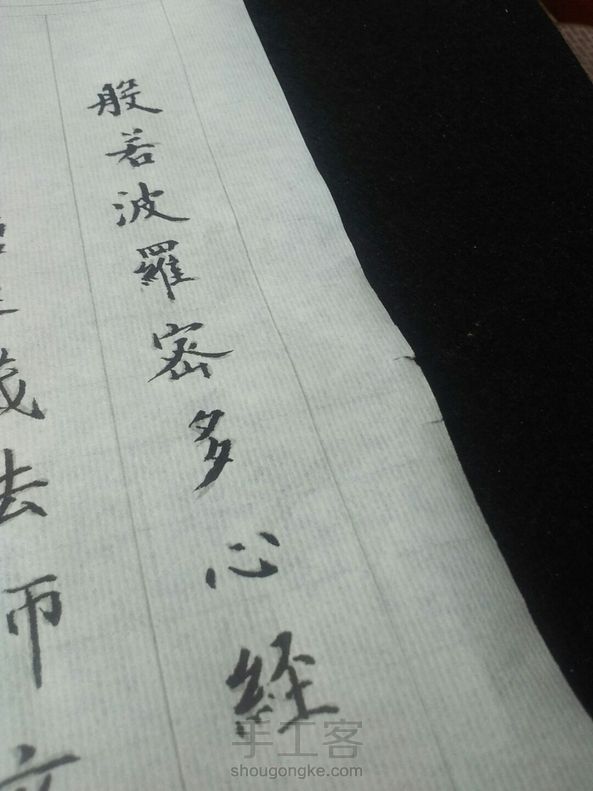 般若波羅密多心經
藏法師
手工客
shougongke.com